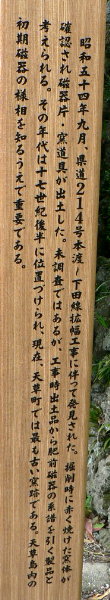 昭和五十四年九月、県道214号本渡~下田線拡幅工事に伴って発見された。掘削時に赤く焼けた窯体が
確認され磁器片・窯道具が出土した。未調査ではあるが、工事時出土品から肥前磁器の系譜を引く製品と
考えられる。その年代は十七世紀後半に位置づけられ、現在、天草町では最も古い窯跡である。天草島内の
初期磁器の様相を知るうえで重要である。